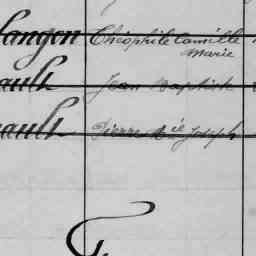 langon Théophile Camille
Marie
ault Jean Baptiste
ault Pierre Mie Joseph